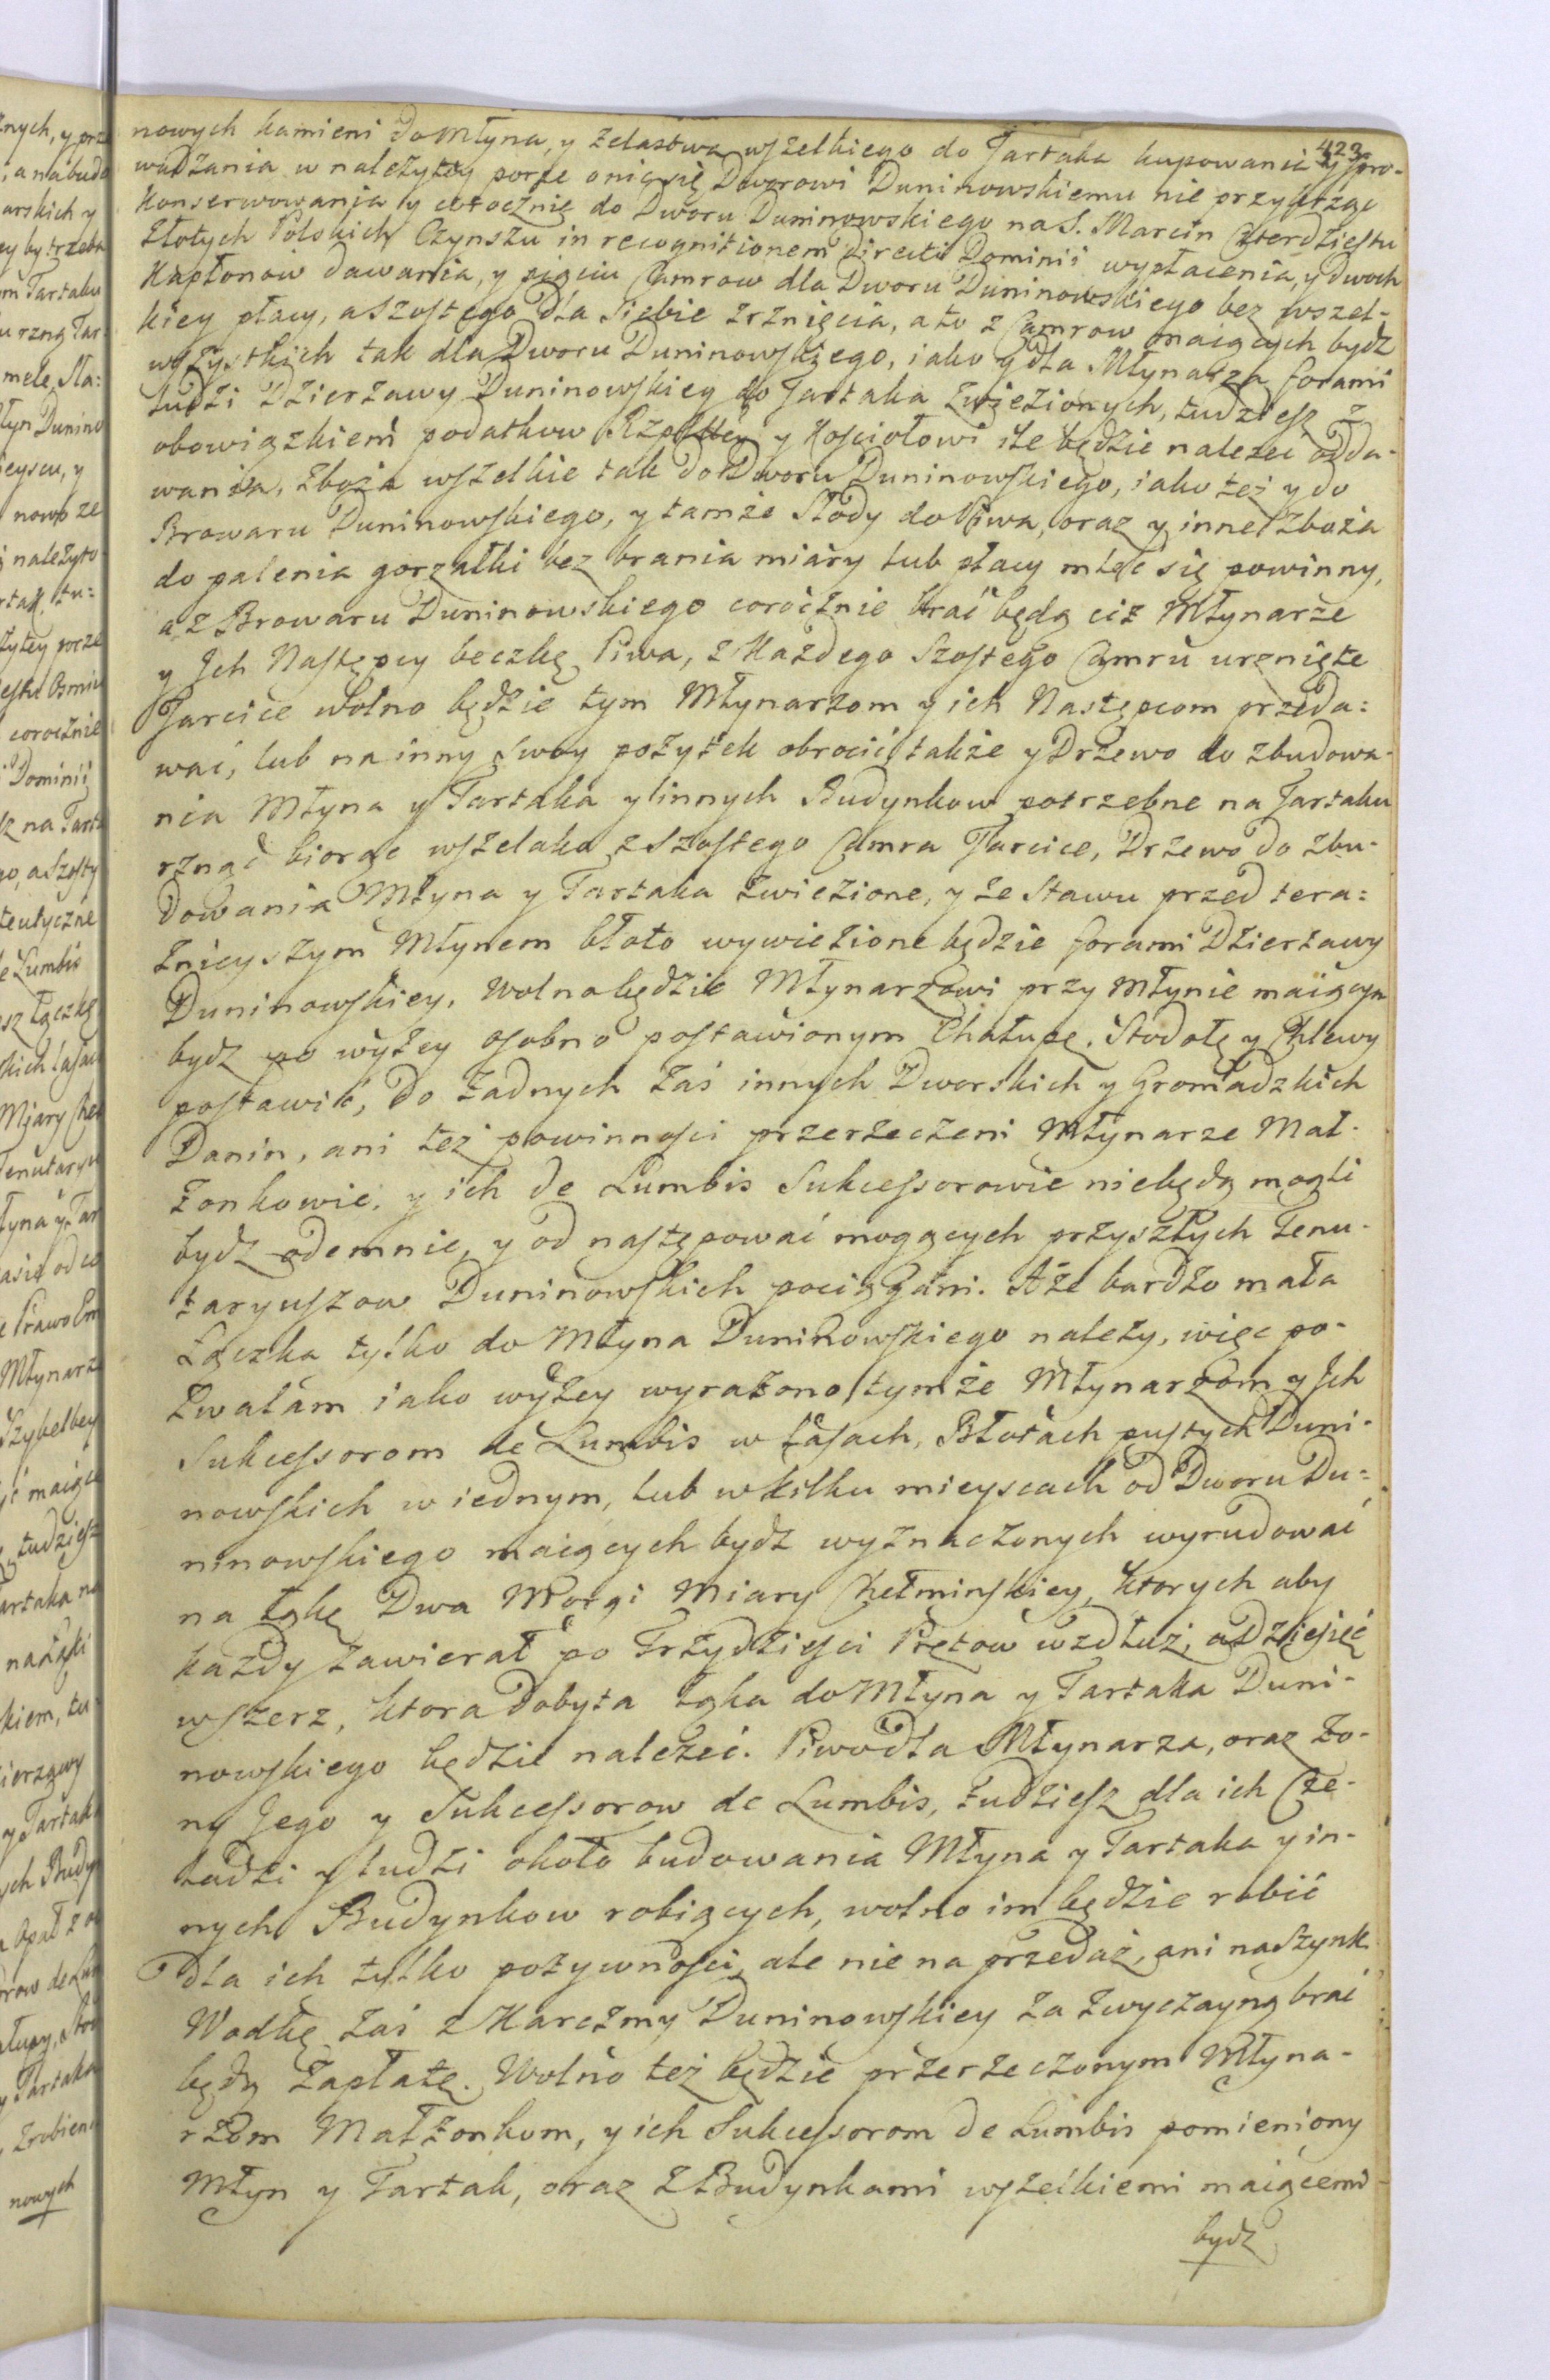 423
nowych kamieni do Młyna, y żelastwa wszelkiego do Tartaka kupowania y spro-
wadzania w należytey porze o nic się Dworowi Duninowskiemu nie przykrząc
Konserwowania y corocznie do Dworu Duninowskiego na S. Marcin Czterdziestu
Złotych Polskich Czynszu in recognitionem directi Dominii wypłacenia, y dwoch
Kapłonow dawania, y pięciu Camrow dla Dworu Duninowskiego bez wszel-
kiey płacy, a szostego dla siebie zrznięcia, a to z Camrow maiących bydz
wszystkich tak dla Dworu Duninowskiego, iako y dla Młynarza forami
ludzi Dzierżawy Duninowskiey do Tartaka zwiezionych, tudziesz z
obowiązkiem podatkow Rzpltey y Kościołowi ile będzie należeć odda-
wania, zboża wszelkie tak do Dworu Duninowskiego, iako też y do
Browaru Duninowskiego, y tamże Słody do Piwa, oraz y inne zboża
do palenia gorzałki bez brania miary lub płacy mleć się powinny,
a z Browaru Duninowskiego corocznie brać będą ciż Młynarze
y Jch Następcy beczkę Piwa, z Każdego Szostego Camru urznięte
Tarcice wolno będzie tym Młynarzom y ich Następcom przeda=
wać, lub na inny swoy pożytek obrocić, także y Drzewo do zbudowa-
nia Młyna y Tartaka y innych Budynkow potrzebne na Tartaku
rznąć biorąc wszelako z szostego Camra Tarcice, Drzewo do zbu-
dowania Młyna y Tartaka zwiezione, y ze Stawu przed tera=
znieyszym Młynem błoto wywiezione będzie forami Dzierżawy
Duninowskiey. Wolno będzie Młynarzowi przy Młynie maiącym
bydz po wyżey osobno postawionym Chałupę, Stodołę y Chlewy
postawić, do żadnych zaś innych Dworskich y Gromadzkich
Danin, ani też powinności przerzeczeni Młynarze Mał-
żonkowie, y ich de Lumbis Sukcessorowie niebędą mogli
bydz odemnie, y od następować mogących przyszłych Tenu-
taryuszow Duninowskich pociągani. Aże bardzo mała
Łączka tylko do Młyna Duninowskiego należy, więc po-
zwalam iako wyżey wyrażono tymże Młynarzom y Jch
Sukcessorom de Lumbis w Lasach, Błotach pustych Duni-
nowskich w iednym, lub w kilku mieyscach od Dworu Du=
ninowskiego maiących bydz wyznaczonych wyrudować
na łąkę Dwa Morgi Miary Chełminskiey, ktorych aby
każdy zawierał po Trzydzieści Prętow wzdłuż, a Dziesięć
wszerz, ktora dobyta łąka do Młyna y Tartaka Duni-
nowskiego będzie należeć. Piwo dla Młynarza, oraz Żo-
ny Jego y Sukcessorow de Lumbis, tudziesz dla ich Cze-
ladzi y ludzi około budowania Młyna y Tartaka y in-
nych Budynkow robiących, wolno im będzie robić
dla ich tylko pożywności, ale nie na przedaż, ani na szynk
Wodkę zaś z Karczmy Duninowskiey za zwyczayną brać
będą zapłatę. Wolno też będzie przerzeczonym Młyna-
rzom Małżonkom, y ich Sukcessorom de Lumbis pomieniony
Młyn y Tartak, oraz z Budynkami wszelkiemi maiącemi
bydz